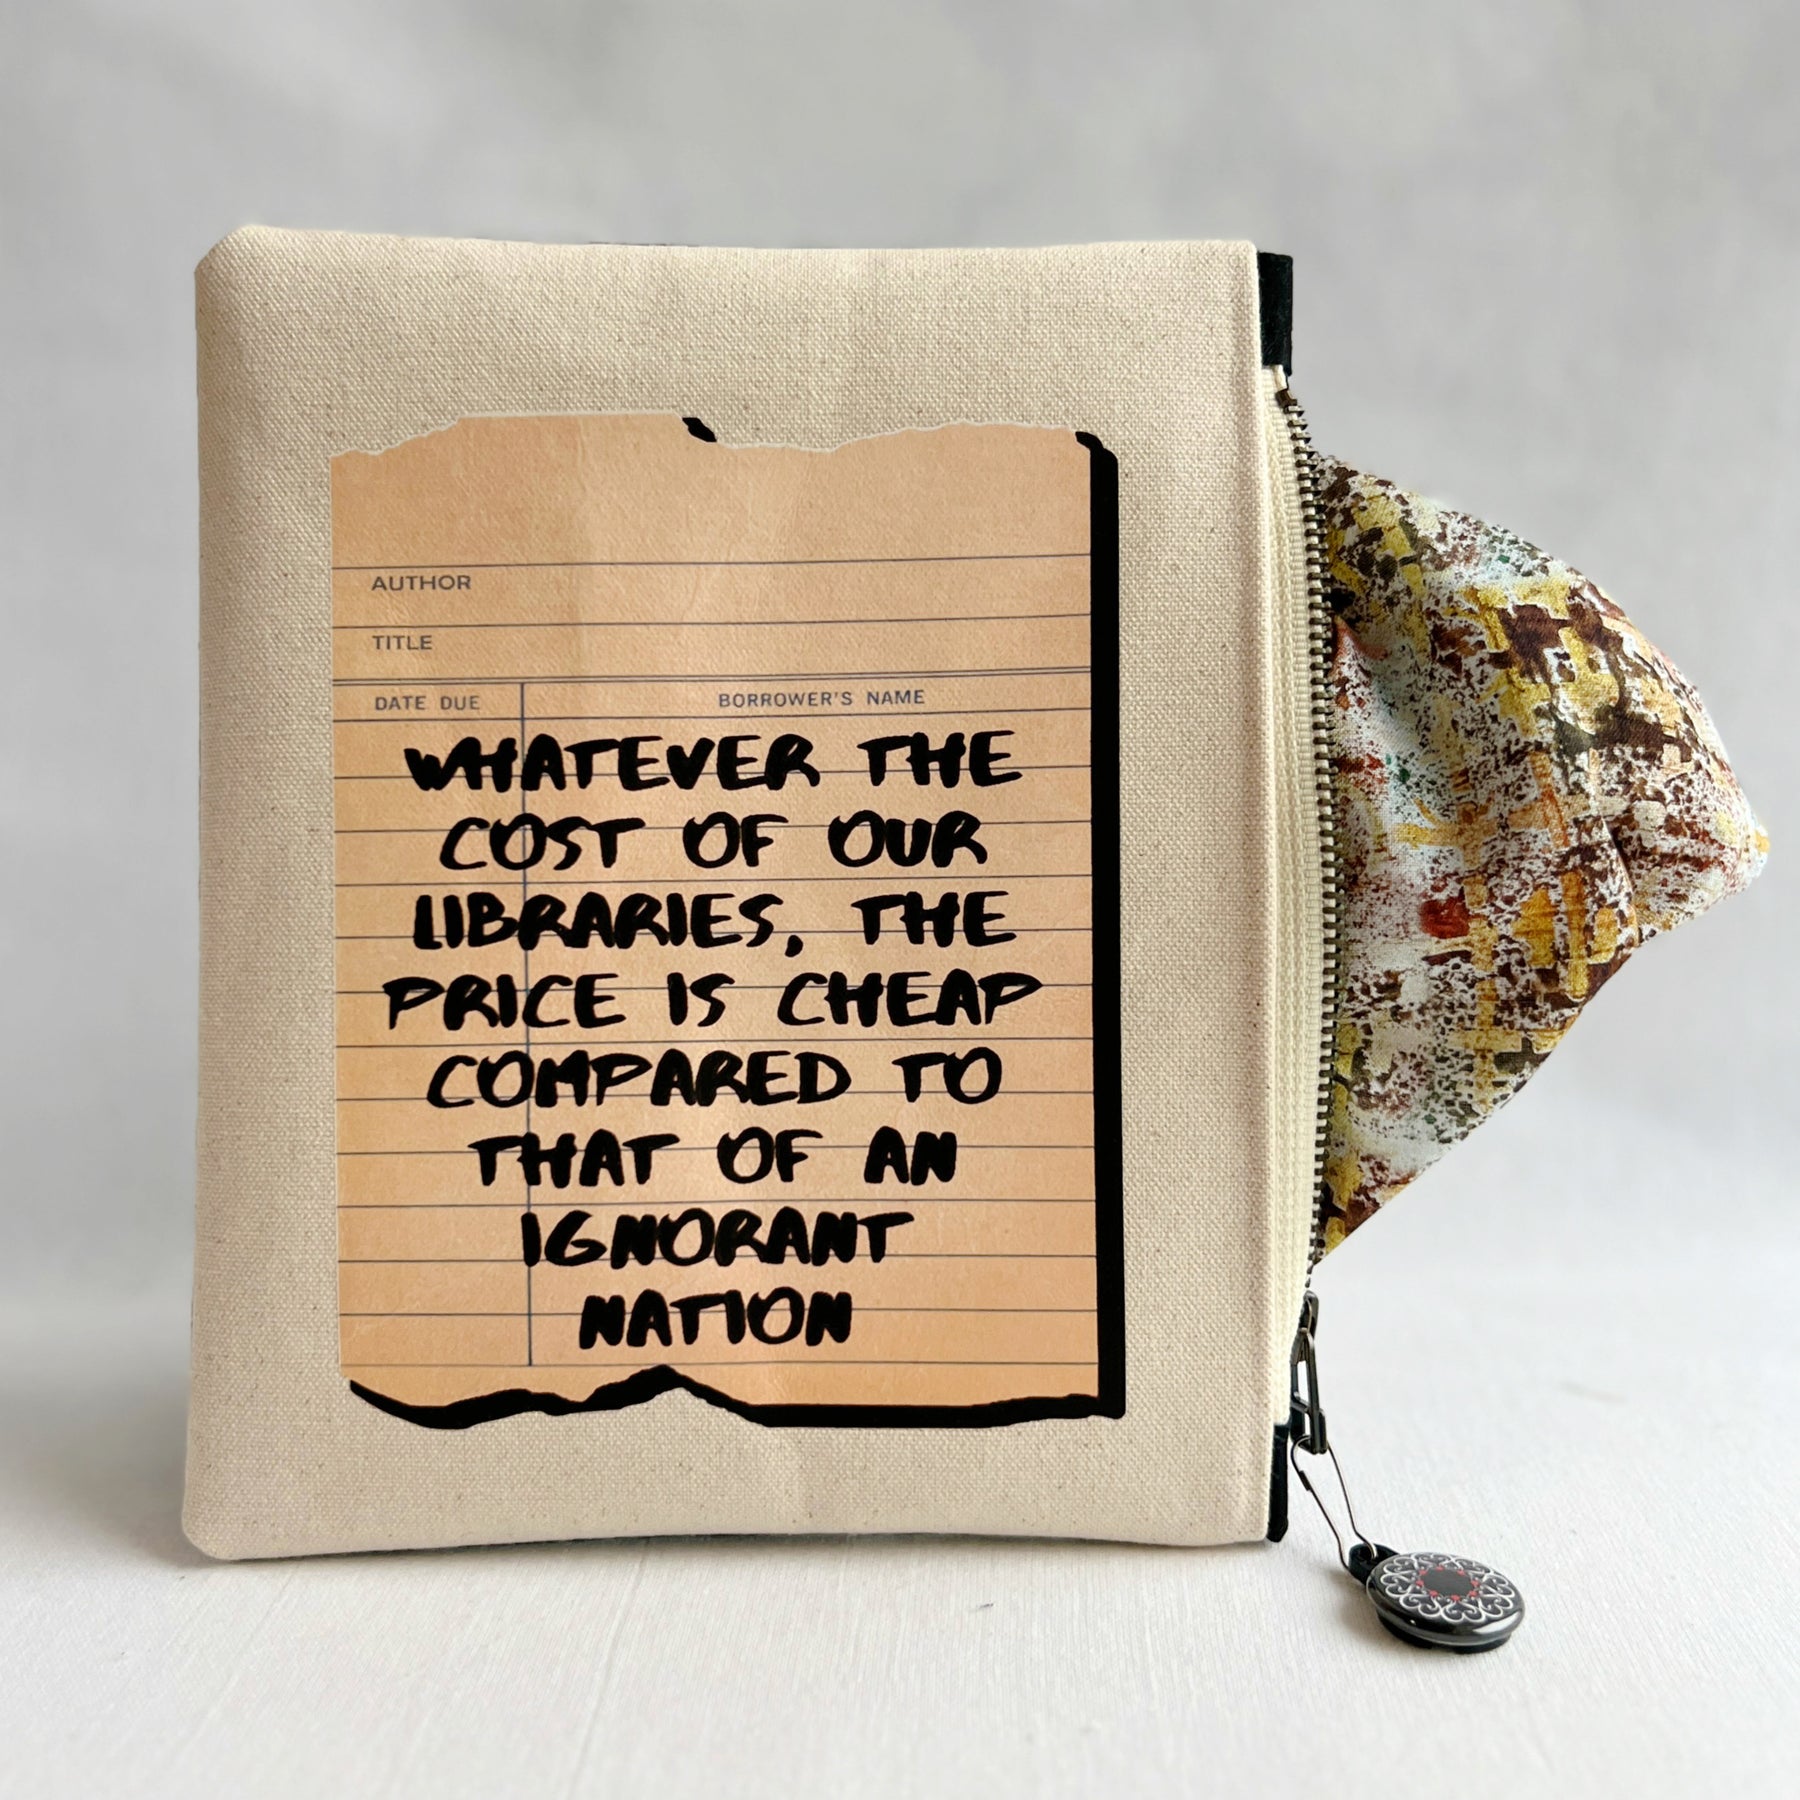 AUTHOR
TITLE
DATE DUE BORROWER'S NAME
WHATEVER THE
COST OF OUR
LIBRARIES, THE
PRICE IS CHEAP
COMPARED TO
THAT OF AN
IGNORANT
NATION